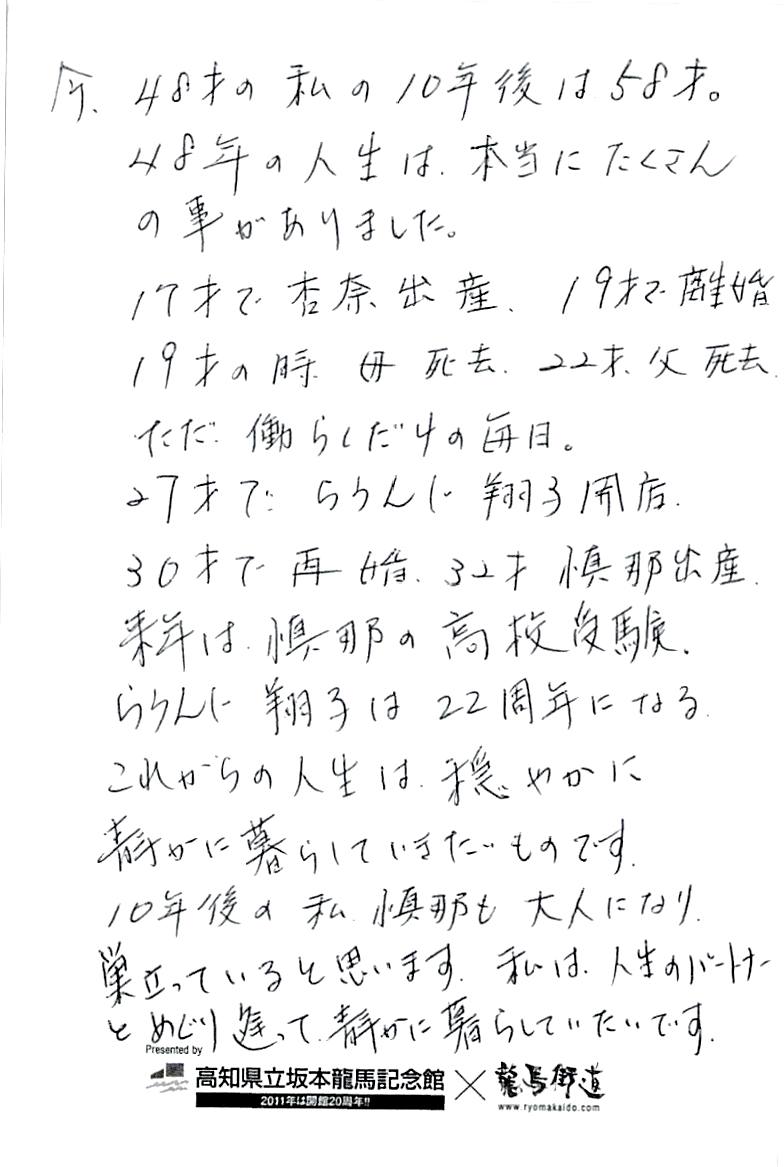 今、48才の私の10年後は58才。
48年の人生は、本当にたくさん
の事がありました。
17才で杏奈出産、19才で離婚
19才の時、母死去、22才、父死去、
ただ、働らくだけの毎日。
27才で、らうんじ翔子開店、
30才で再婚、32才慎那出産、
来年は、慎那の高校受験、
らうんじ翔子は22周年になる、
これからの人生は、穏やかに
静かに暮らしていきたいものです。
10年後の私、慎那も大人になり、
巣立っていると思います。私は、人生のパートナー
とめぐり逢って、静かに暮らしていたいです。
Presented by
高知県立坂本龍馬記念館 × 龍馬街道
2011年は開館20周年!!
www.ryomakaido.com